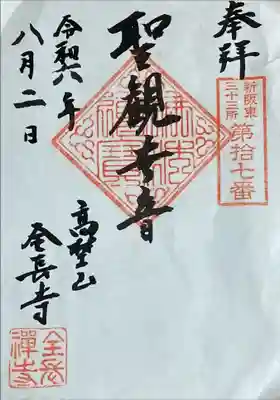 奉拝
新阪東
三十三所
第拾七番
聖観世音
高埜山
全長寺
令和六年
八月二日
全長
禪寺